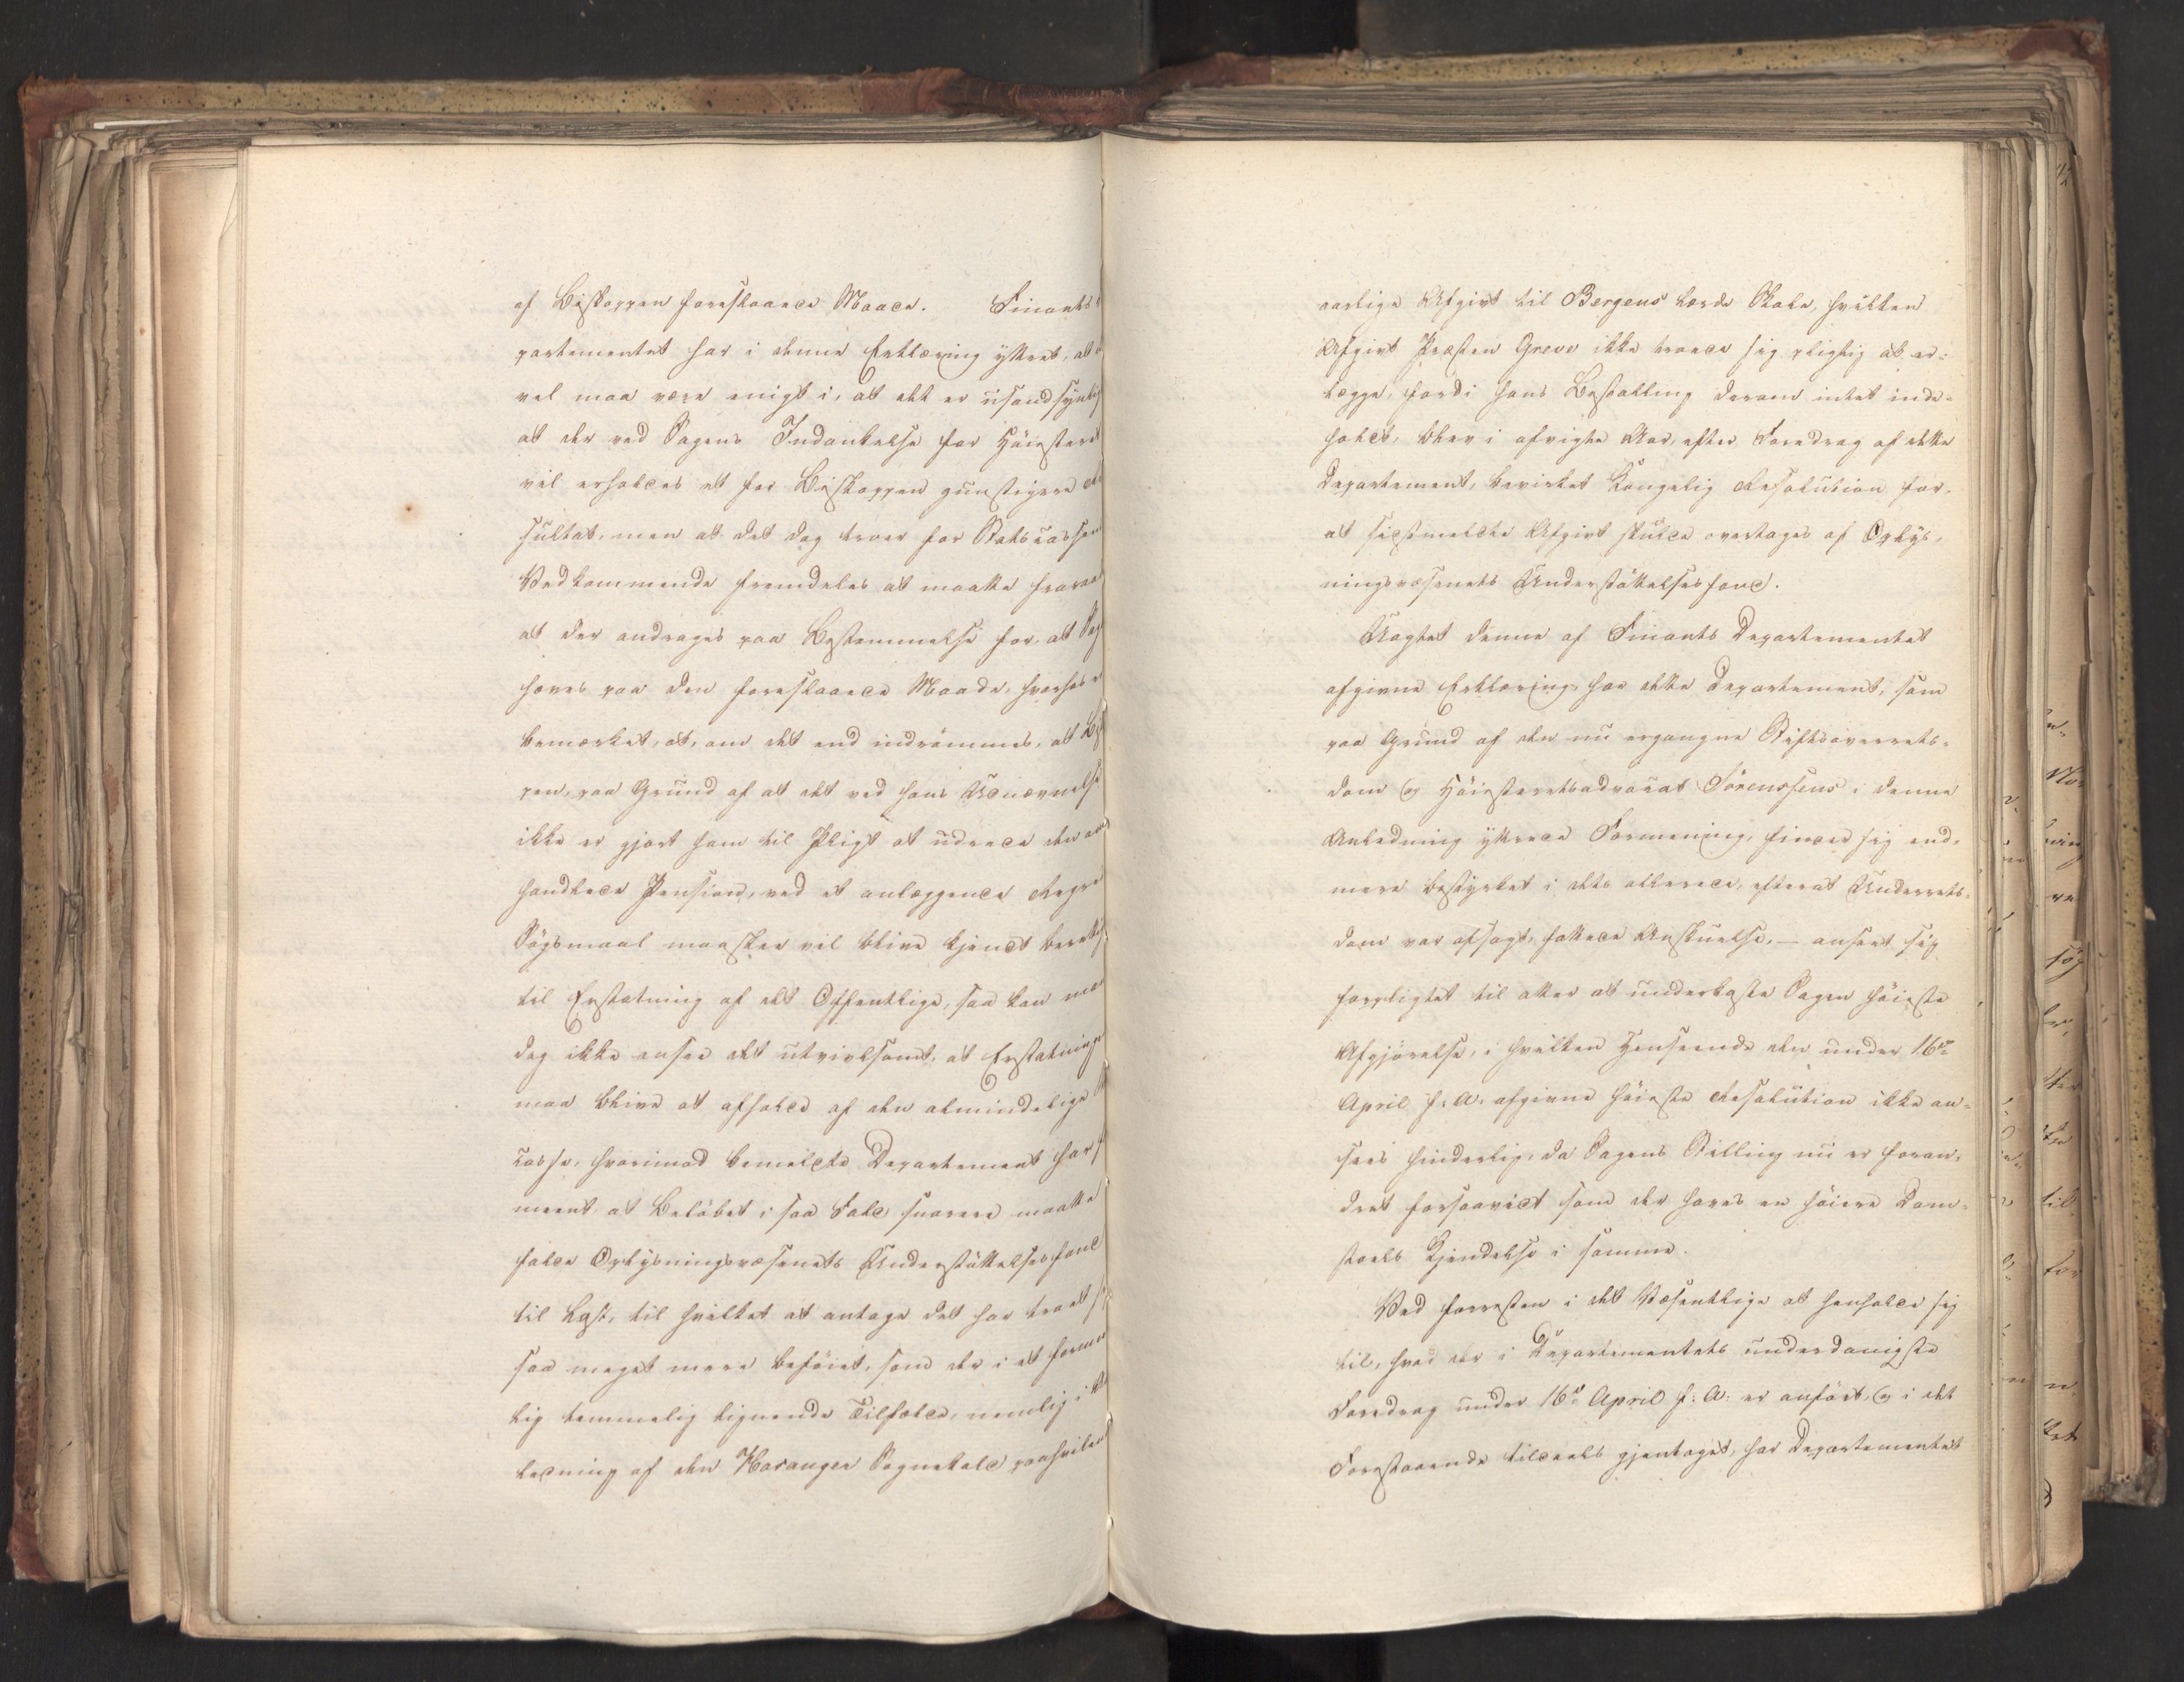 af Biskoppen foreslaaede Maade. Finants
partementet har i denne Erklæring yttret, at
vel maa være enigt i, at det er usandsynlig
at der ved Sagens Indankelse for Høiesteret
vil erholdes et for Biskoppen gunstigere Re
sultat, men at det dog troer for Statscassen
Vedkommende fremdeles at maatte fraraa
at der andrages paa Bestemmelse for, at Sag
hæves paa den foreslaaede Maade, hvorhos
bemærket, at, om det end indrømmes, at Bis
pen, paa Grund af at det ved hans Udnævnelse
ikke er gjort ham til Pligt at udrede den om
handlede Pension, ved et anlæggende Regres
Søgsmaal maaskee vil blive kjendt beretti
til Erstatning af det Offentlige, saa kan man
dog ikke ansee det utvivlsomt, at Erstatninge
maa blive at afholde af den almindelige
casse, hvorimod bemeldte Departement har f
meent at Beløbet i saa Fald snarere maatte
falde Oplysningsvæsenets Understøttelsesfond
til Last, til hvilket at antage det har troet si
saa meget mere beføiet, som der i et formee
lig temmelig lignende Tilfælde, nemlig i
ledning af den Haranger Sognekald paahvilen
aarlige Afgivt til Bergens lærde Skole, hvilken
Afgivt Præsten Greve ikke troede sig pligtig at er-
lægge, fordi hans Bestalling derom intet inde-
holdt, blev i afvigte Aar, efter Foredrag af dette
Departement, bevirket Kongelig Resolution for,
at sidstmeldte Afgivt skulde overtages af Oplys-
ningsvæsenets Understøttelsesfond.
Uagtet denne af Finants Departementet
afgivne Erklæring har dette Departement, som
paa Grund af den nu ergangne Stiftsoverrets-
dom og Høiesteretsadvocat Sörenssens i denne
Anledning yttrede Formening, finder sig end-
mere bestyrket i dets allerede, efterat Underrets-
dom var afsagt, fattede Anskuelse, — anseet sig
forpligtet til atter at underkaste Sagen høieste
Afgjørelse, i hvilken Henseende den under 16de
April f: A: afgivne høieste Resolution ikke an-
sees hinderlig, da Sagens Stilling nu er foran-
dret forsaavidt som der haves en høiere Dom-
stols Kjendelse i samme.
Ved forresten i det Væsentlige at henholde sig
til, hvad der i Departementets underdanigste
Foredrag under 16de April f: A: er anført, og i det
Forestaaende tildeels gjentaget, har Departementet